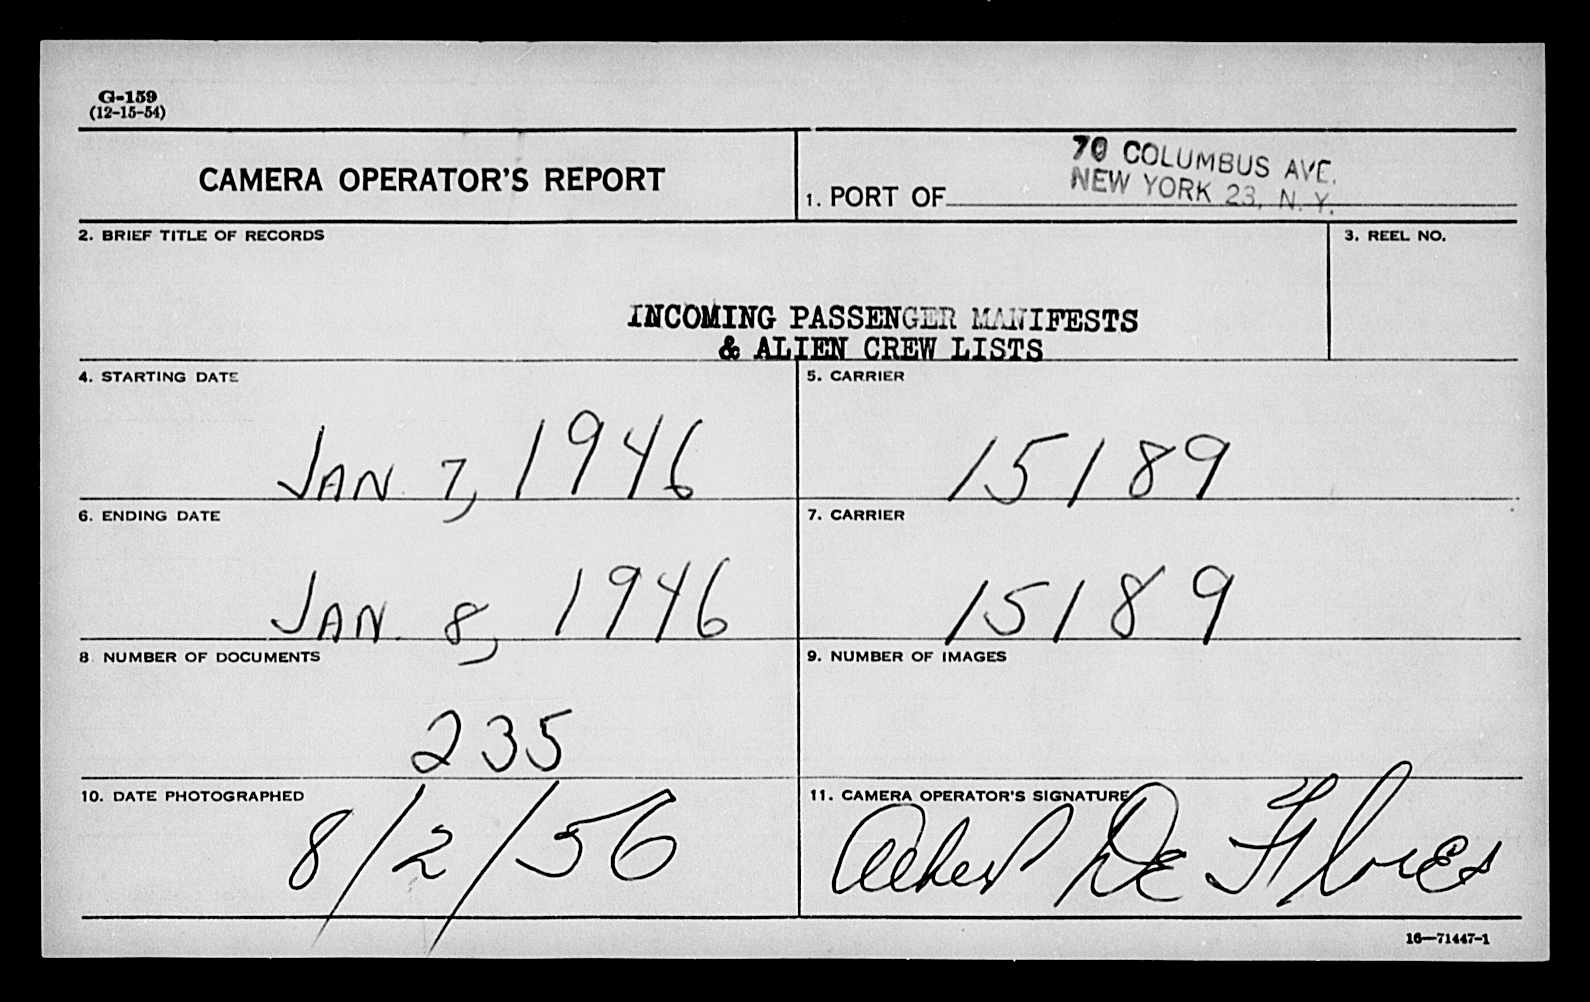 G-159
(12-15-54)
CAMERA OPERATOR'S REPORT
1. PORT OF
70 COLUMBUS AVE.
NEW YORK 23, N. Y.
2. BRIEF TITLE OF RECORDS
3. REEL NO.
INCOMING PASSENGER MANIFESTS
& ALIEN CREW LISTS
4. STARTING DATE
5. CARRIER
JAN 7, 1946
15189
6. ENDING DATE
7. CARRIER
JAN. 8, 1946
15189
8 NUMBER OF DOCUMENTS
9. NUMBER OF IMAGES
235
10. DATE PHOTOGRAPHED
11. CAMERA OPERATOR'S SIGNATURE
8/2/56
Albert De Flores
16—71447-1